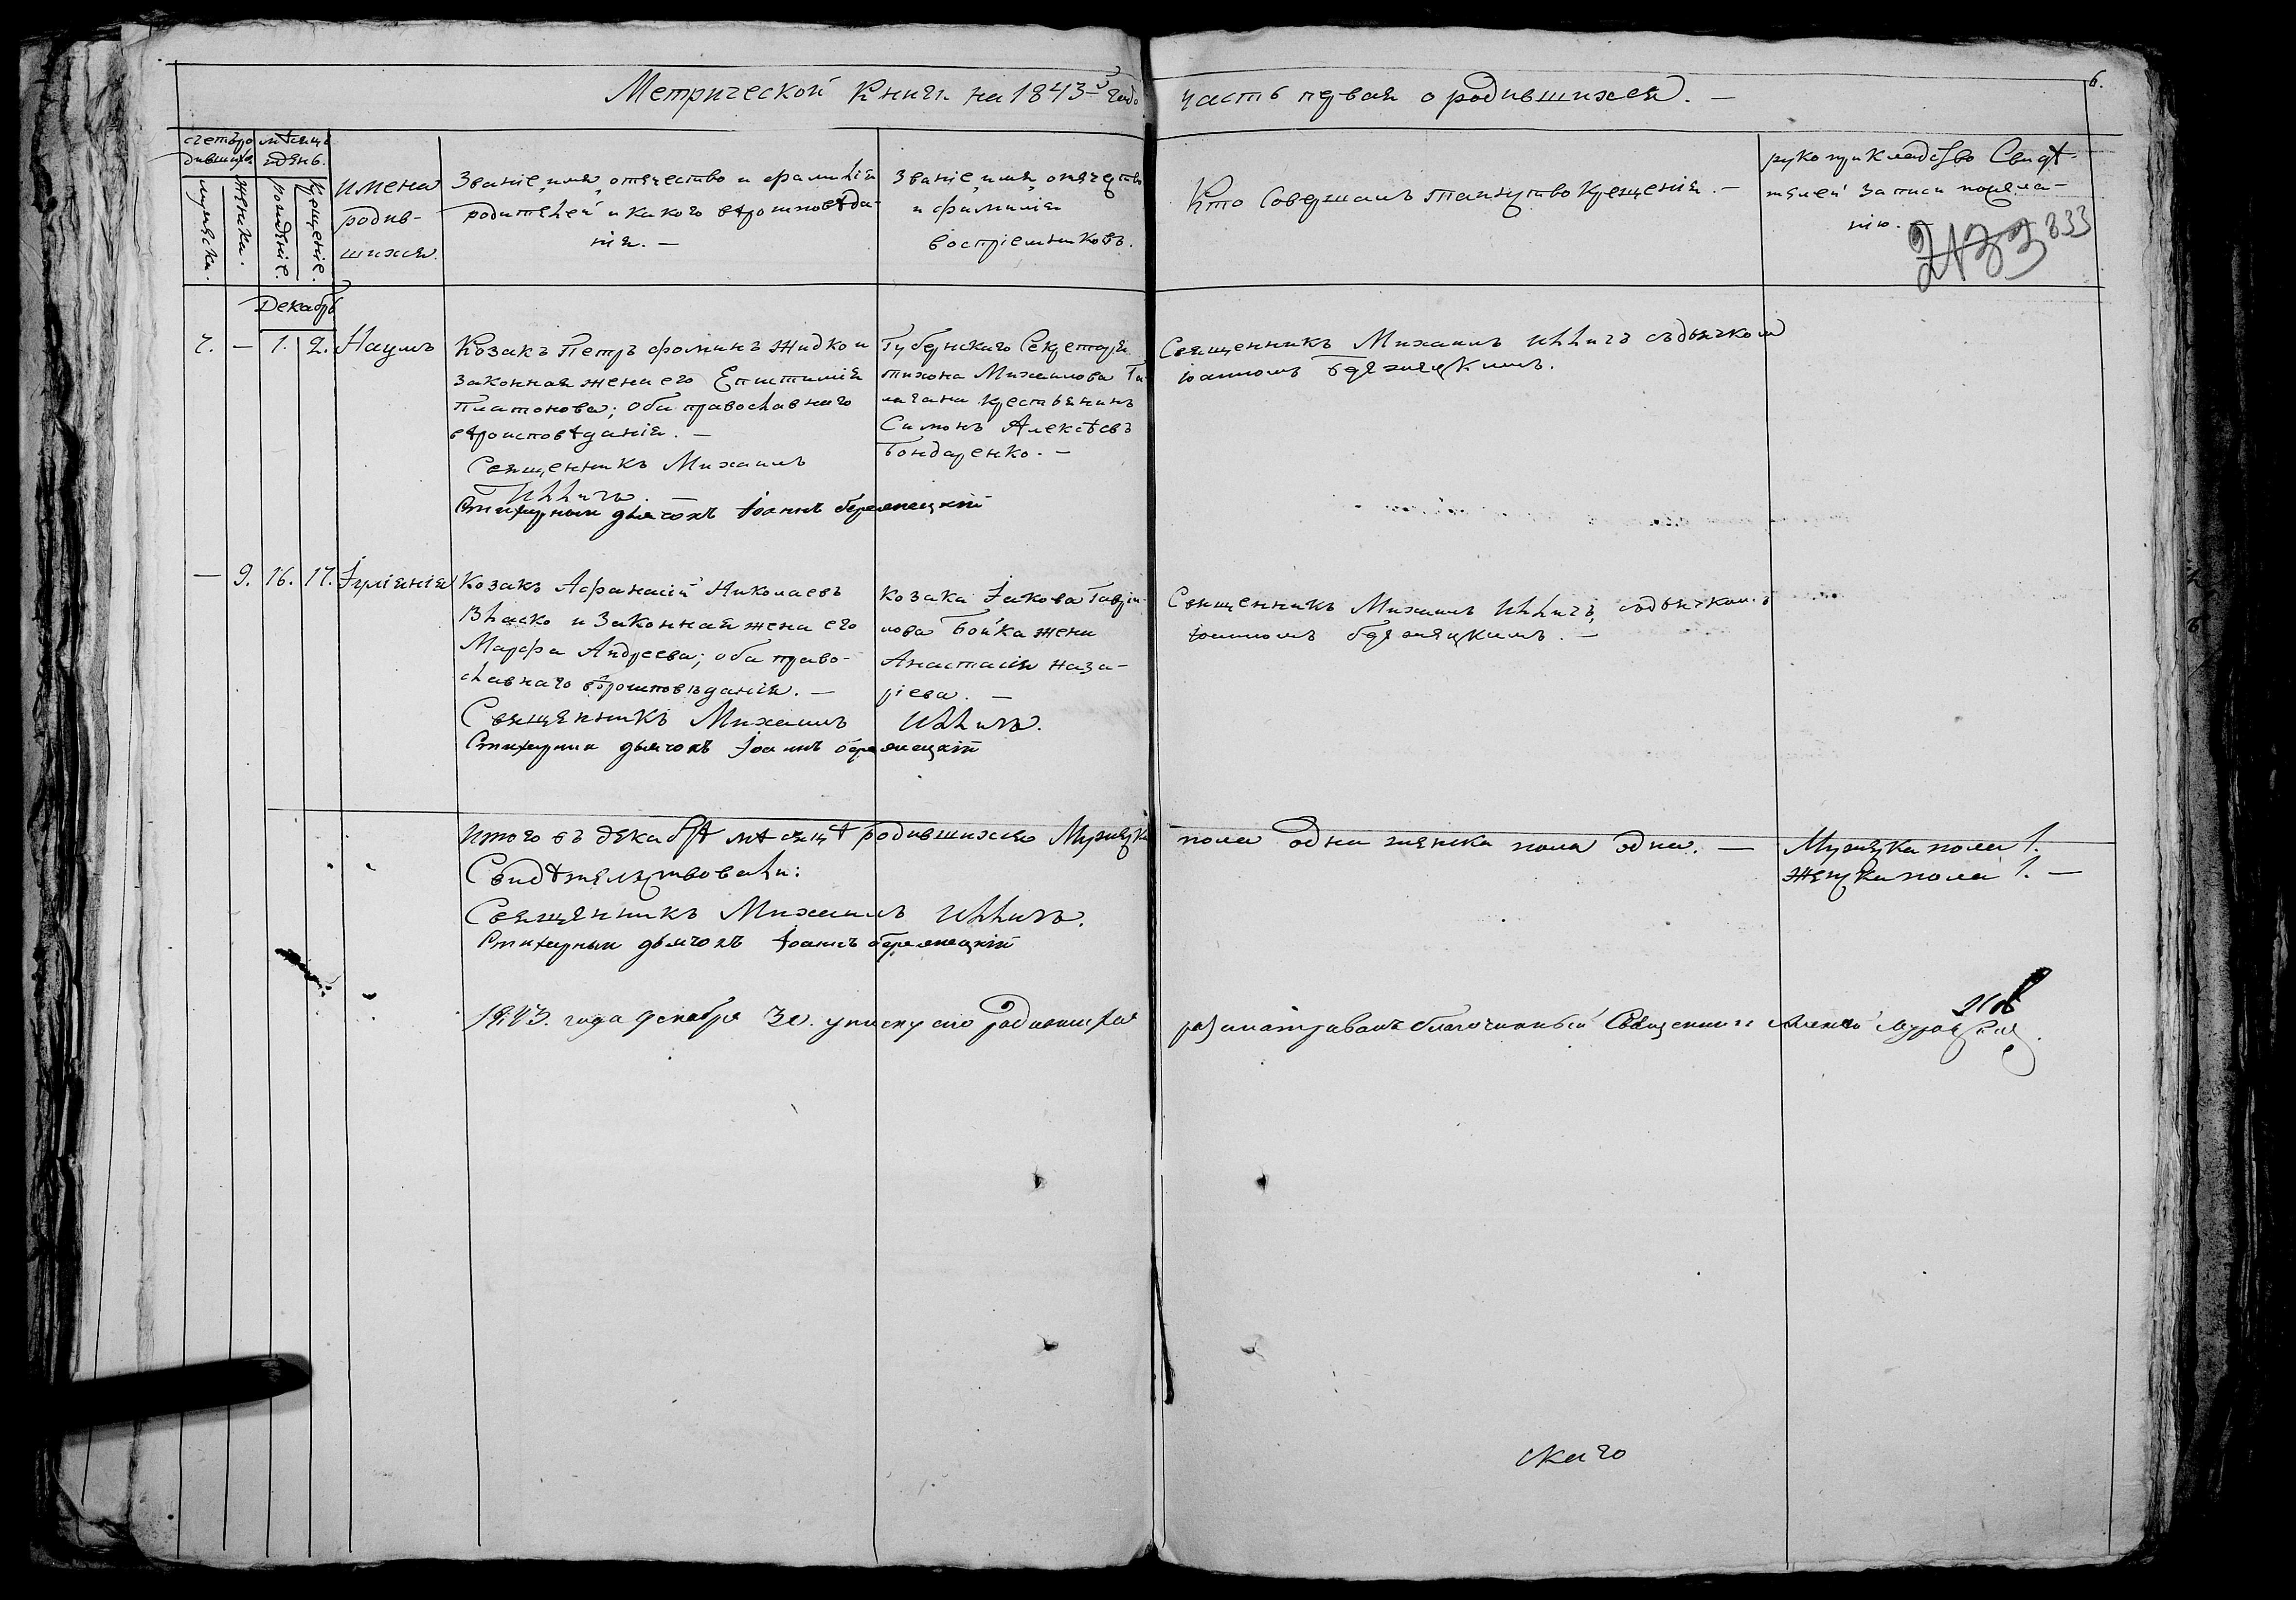 Метрической Книги на 1843-й годъ часть первая о родившихся. —
6.
счетъ ро
дившихся
мѣсяцъ
и день.
мужеска.
женска.
рожденіе.
крещеніе.
имена
родив-
шихся.
Званіе, имя, отечество и фамилія
родителей и какого вѣроисповѣда-
нія. —
Званіе, имя, отечество
и фамилія
воспріемниковъ.
Кто совершалъ таинство крещенія. —
рукоприкладство свидѣ-
телей записи по жела-
нію.
233 833
Декабрь
7. — 1. 2. Наумъ
Козакъ Петръ Фоминъ Жидко и
законная жена его Епистимія
Платонова; оба православнаго
вѣроисповѣданія. —
Священникъ Михаилъ
Илличъ.
Стихарный дьячокъ Іоаннъ
Губернскаго Секретаря
Тихона Михайлова
крестьянинъ
Симонъ Алексѣевъ
Бондаренко. —
Священникъ Михаилъ Илличъ съ дьячкомъ
Іоанномъ
— 9. 16. 17. Іуліянія
Козакъ Афанасій Николаевъ
Власко и законная жена его
Марфа Андреева; оба право-
славнаго вѣроисповѣданія. —
Священникъ Михаилъ Илличъ.
Стихарный дьячокъ Іоаннъ
Козака Іакова Гаврі-
лова Бойка жена
Анастасія Наза-
ріева. —
Священникъ Михаилъ Илличъ, съ дьячкомъ
Іоанномъ
Итого въ декабрѣ мѣсяцѣ родившихся мужеска пола одна женска пола одна. —
Мужеска пола 1.
Женска пола 1. —
Свидѣтельствовали:
Священникъ Михаилъ Илличъ.
Стихарный дьячокъ Іоаннъ
1843. года декабря 30. записку сію родившихся разсматривалъ благочинный Священникъ
скаго